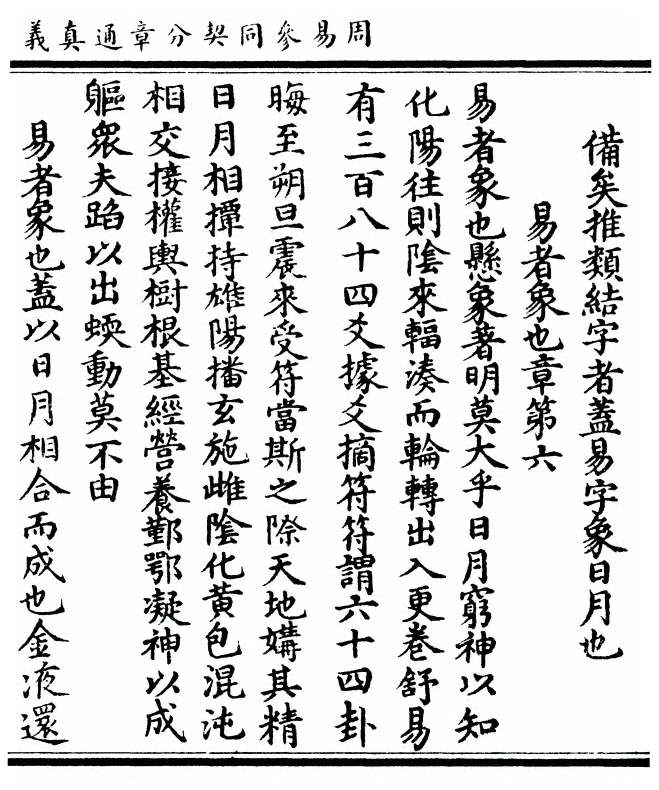 周易參同契分章通真義
備矣推類結字者蓋易字象日月也
易者象也章第六
易者象也懸象著明莫大乎日月窮神以知
化陽往則陰來輻湊而輪轉出入更卷舒易
有三百八十四爻據爻摘符符謂六十四卦
晦至朔旦震來受符當斯之際天地媾其精
日月相撢持雄陽播玄施雌陰化黃包混沌
相交接權輿樹根基經營養鄞鄂凝神以成
軀眾夫蹈以出蝡動莫不由
易者象也蓋以日月相合而成也金液還